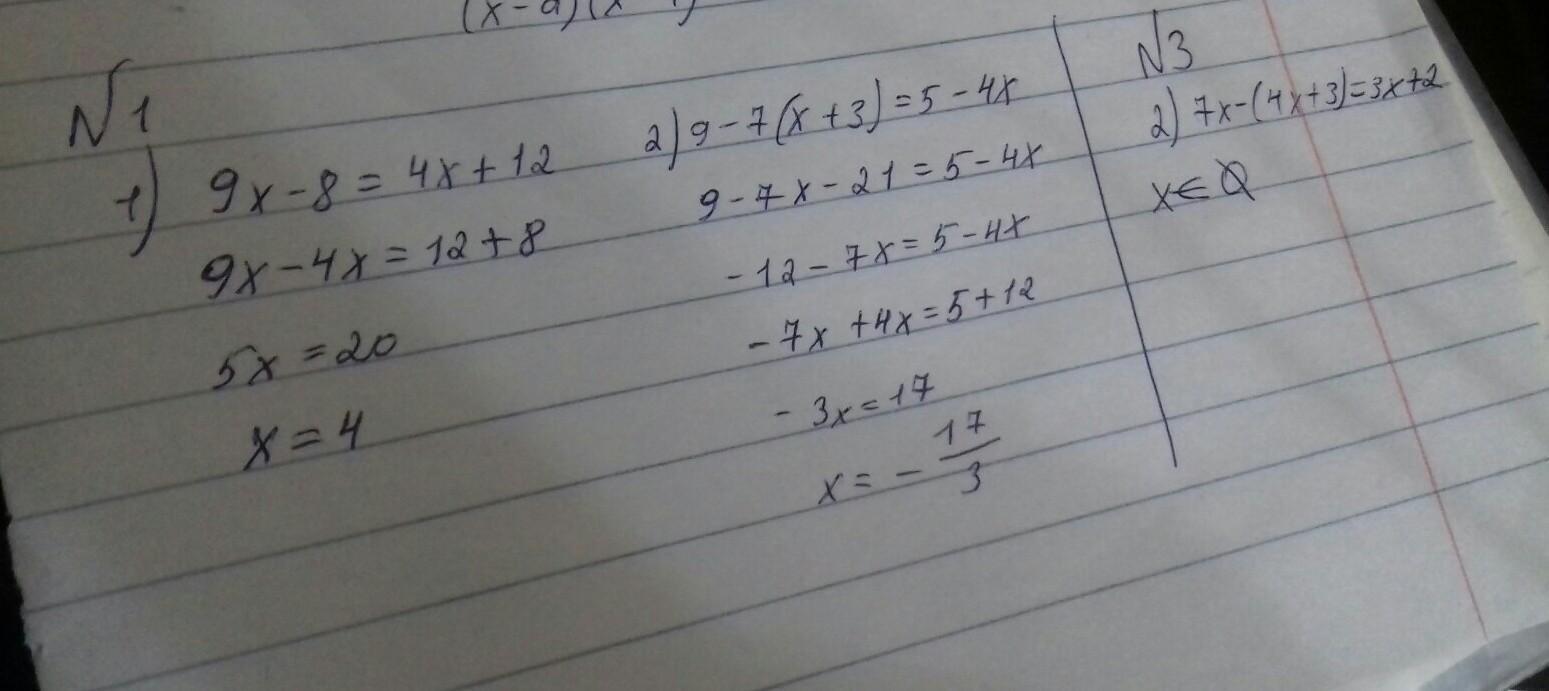 (x-a)(x
N1
1) 9x-8=4x+12
9x-4x=12+8
5x=20
x=4
2) 9-7(x+3)=5-4x
9-7x-21=5-4x
-12-7x=5-4x
-7x+4x=5+12
-3x=17
x=-17/3
N3
2) 7x-(4x+3)=3x+2
x∈Ø